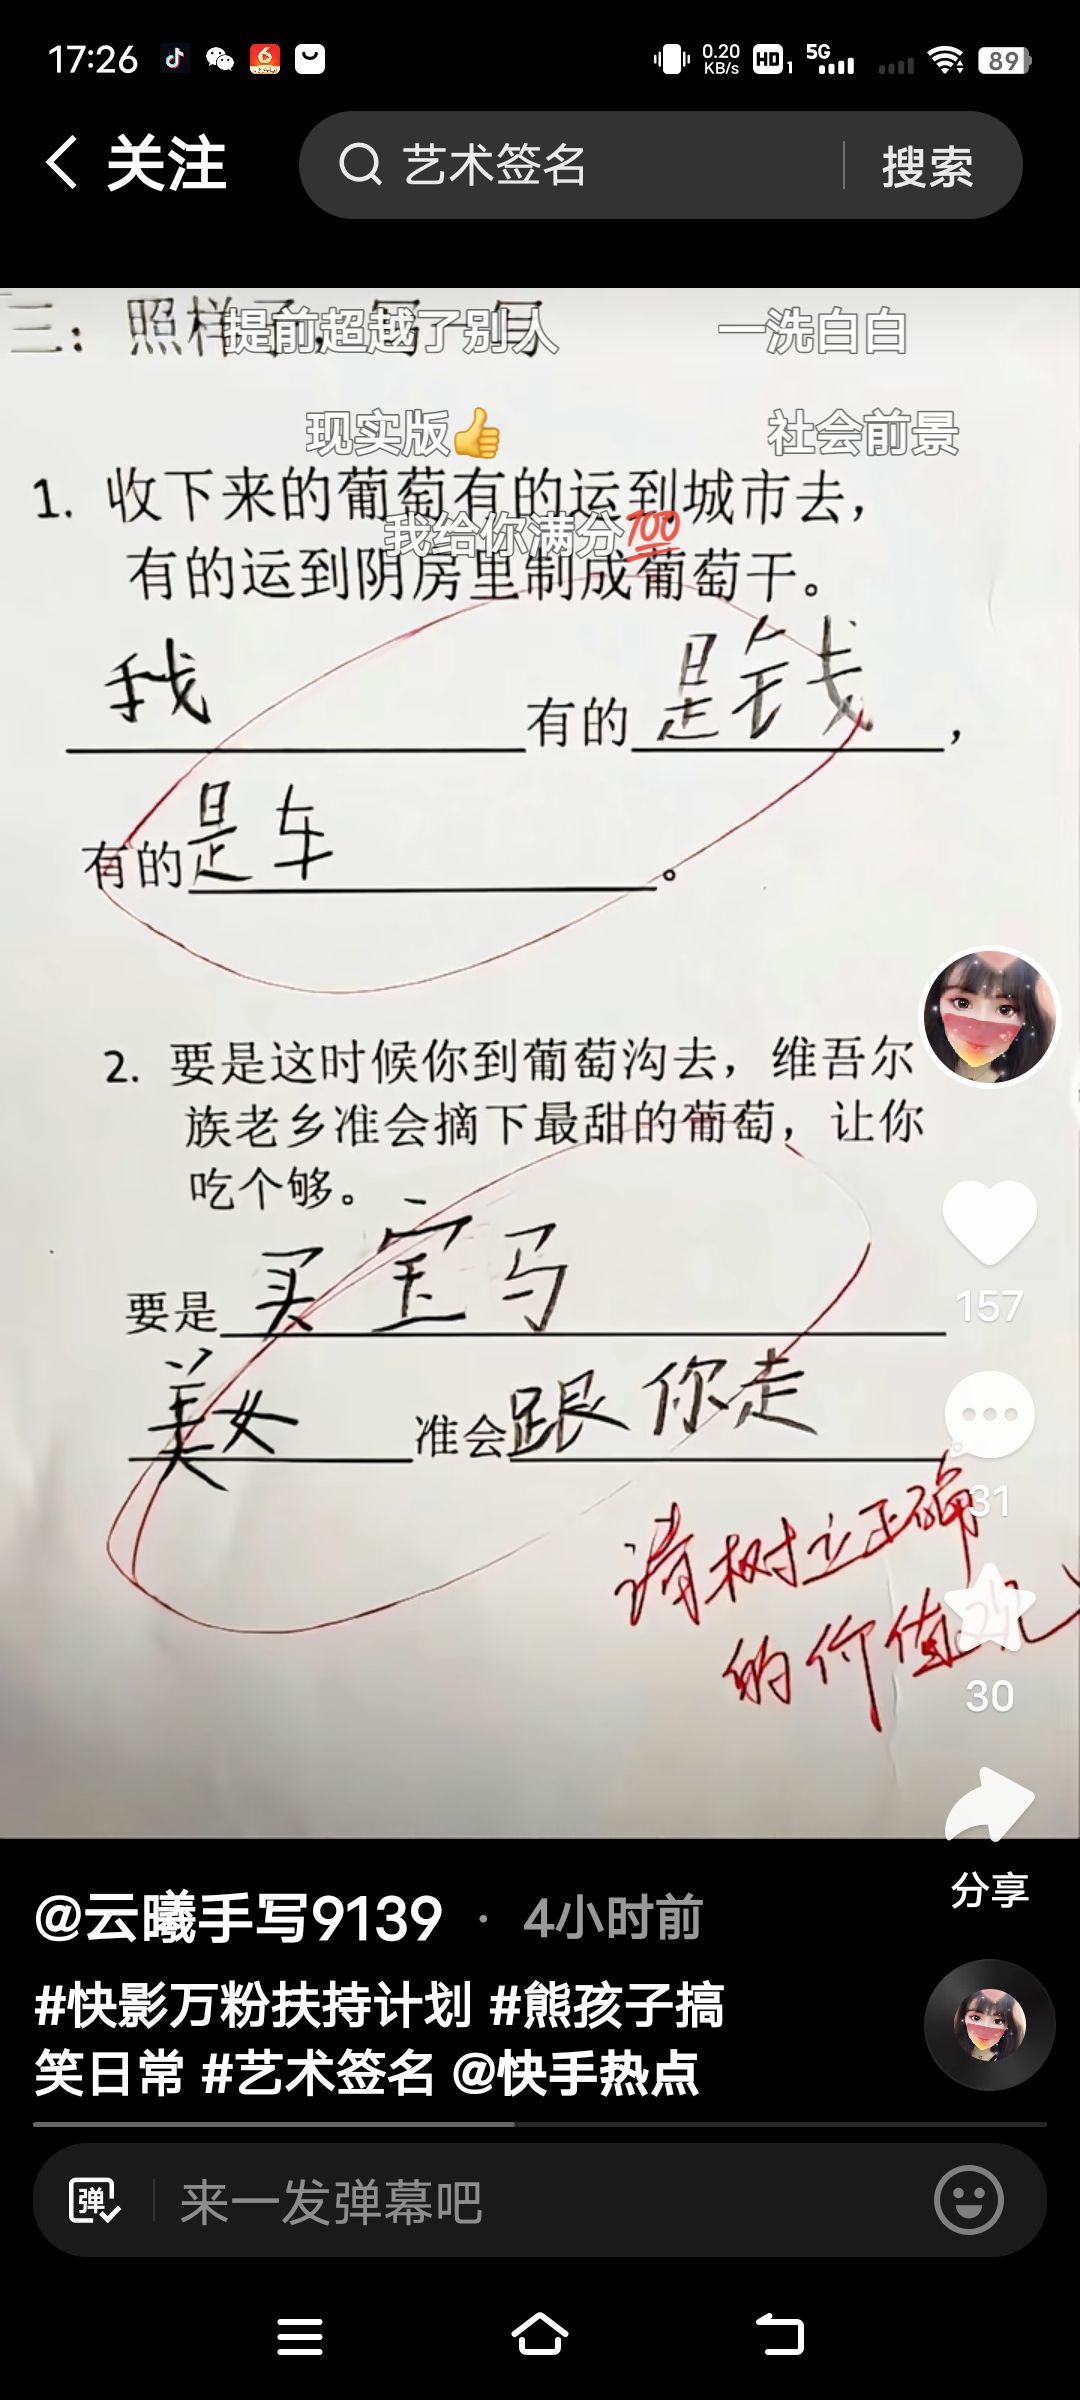 17:26
0.20 KB/s HD 1 5G 89
关注
艺术签名
搜索
三：照样子，写一写
提前超越了别人
一洗白白
现实版👍
社会前景
1. 收下来的葡萄有的运到城市去，
我给你满分💯
有的运到阴房里制成葡萄干。
我 有的 是钱，
有的是车。
2. 要是这时候你到葡萄沟去，维吾尔
族老乡准会摘下最甜的葡萄，让你
吃个够。
要是 买宝马
美女 准会跟你走。
157
31
请树立正确
的价值观
30
分享
@云曦手写9139 · 4小时前
#快影万粉扶持计划 #熊孩子搞
笑日常 #艺术签名 @快手热点
弹
来一发弹幕吧